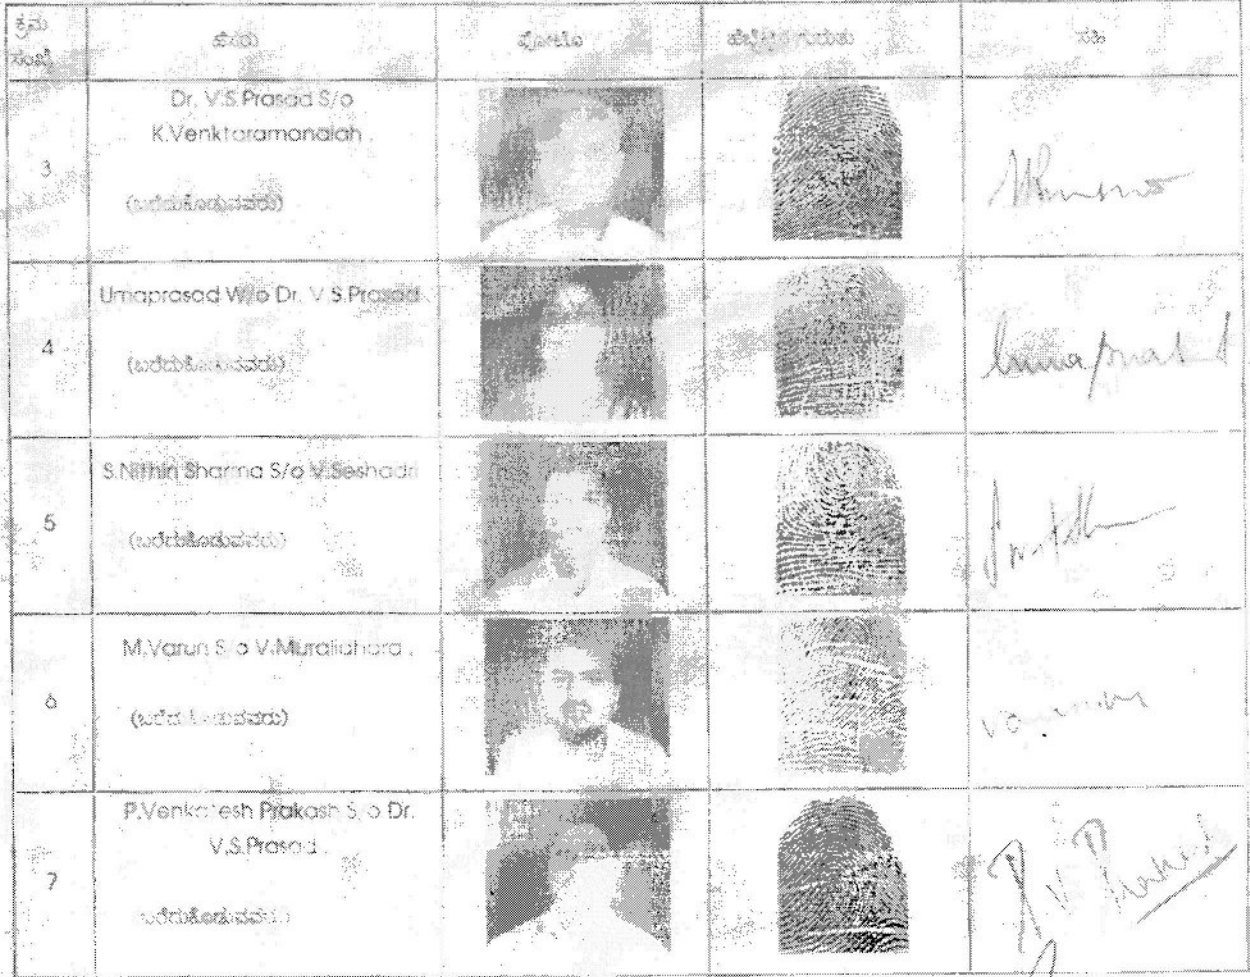 ಕ್ರಮ ಸಂಖ್ಯೆ ಹೆಸರು ಫೋಟೊ ಹೆಬ್ಬೆಟ್ಟಿನ ಗುರುತು ಸಹಿ
3 Dr. V.S.Prasad S/o
K.Venktaramanaiah .
(ಬರೆದುಕೊಡುವವರು)
4 Umaprasad W/o Dr. V.S.Prasad
(ಬರೆದುಕೊಡುವವರು)
Umaprasad
5 S.Nithin Sharma S/o V.Seshadri
(ಬರೆದುಕೊಡುವವರು)
6 M.Varun S/o V.Muralidhara .
(ಬರೆದುಕೊಡುವವರು)
7 P.Venkatesh Prakash S/o Dr.
V.S.Prasad .
(ಬರೆದುಕೊಡುವವರು)